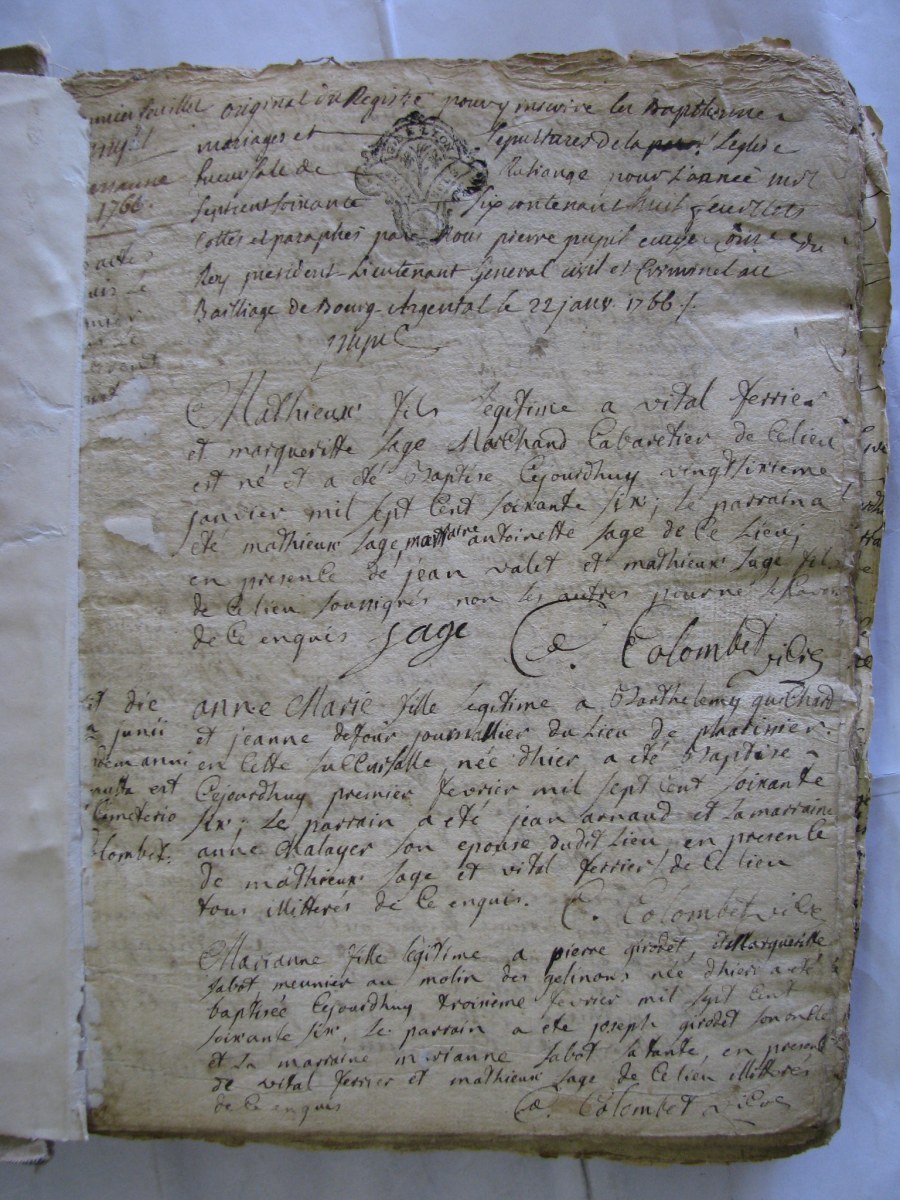 mier feuillet
1766.
original du Registre pour y inscrire les Bapthemes
mariages et Sepultures de la Leglise
succursale de Ruthiange pour l'année mil
sept cent soixante six contenant huit feuillets
cottés et paraphés par Nous pierre pupil ecuyer du
Roy president Lieutenant general civil et Criminel au
Bailliage de Bourg-Argental le 22 janv 1766 /.
pupil
Mathieux fils legitime a vital ferrier
et margueritte sage Marchand Cabaretier de Ce lieu
est né et a été Baptise Cejourdhuy vingtsixieme
janvier mil sept Cent soixante six; le parrain a
été mathieux sage, marraine antoinette sage de Ce Lieu,
en presence de jean valet et mathieux sage fils
de Ce lieu soussignés non les autres pour ne scavoir
de Ce enquis sage C. Colombet vicre
anne Marie fille legitime a Barthelemy guichard
et jeanne detour journallier du Lieu de pharimier
en Cette succursalle, née dhier a été Baptise
Cejourdhuy premier fevrier mil sept cent soixante
six; Le parrain a été jean arnaud et La marraine
anne Chalayer son epouse dudit Lieu, en presence
de mathieux sage et vital ferrier de Ce lieu
tous illitterés de Ce enquis. C. Colombet vicre
et die
junii
dem anni
est
Cemeterio
Colombet.
Marianne fille legitime a pierre girodet, et Margueritte
sabot meunier au molin des gelinons née dhier a été
baptisée Cejourdhuy troisieme fevrier mil sept Cent
soixante six, Le parrain a été joseph girodet son oncle
et La marraine marianne sabot sa tante, en presence
de vital ferrier et mathieux sage de Ce lieu illitterés
de Ce enquis C. Colombet vicre